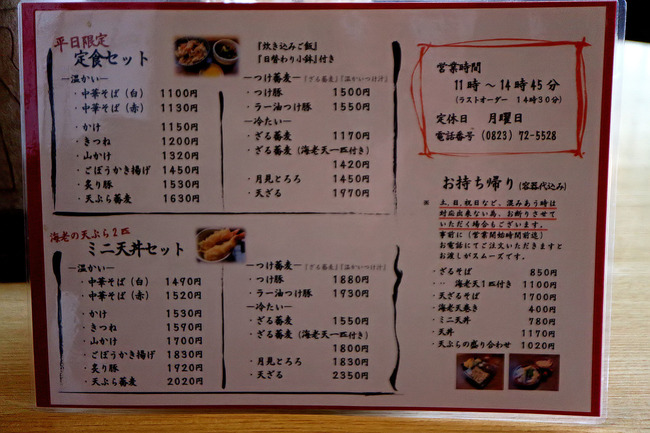 平日限定
定食セット
『炊き込みご飯』
『日替わり小鉢』付き
―温かい―
・中華そば（白） 1100円
・中華そば（赤） 1130円
・かけ 1150円
・きつね 1200円
・山かけ 1320円
・ごぼうかき揚げ 1450円
・炙り豚 1530円
・天ぷら蕎麦 1630円
―つけ蕎麦―『ざる蕎麦』『温かいつけ汁』
・つけ豚 1500円
・ラー油つけ豚 1550円
―冷たい―
・ざる蕎麦 1170円
・ざる蕎麦（海老天一匹付き）
1420円
・月見とろろ 1450円
・天ざる 1970円
海老の天ぷら2匹
ミニ天丼セット
―温かい―
・中華そば（白） 1490円
・中華そば（赤） 1520円
・かけ 1530円
・きつね 1590円
・山かけ 1700円
・ごぼうかき揚げ 1830円
・炙り豚 1920円
・天ぷら蕎麦 2020円
―つけ蕎麦―『ざる蕎麦』『温かいつけ汁』
・つけ豚 1880円
・ラー油つけ豚 1930円
―冷たい―
・ざる蕎麦 1550円
・ざる蕎麦（海老天一匹付き）
1800円
・月見とろろ 1830円
・天ざる 2350円
営業時間
11時～14時45分
（ラストオーダー 14時30分）
定休日 月曜日
電話番号（0823）72-5528
お持ち帰り（容器代込み）
※ 土、日、祝日など、混みあう時は
対応出来ない為、お断りさせて
いただく場合もございます。
事前に（営業開始時間前迄）
お電話にてご注文いただきますと
お渡しがスムーズです。
・ざるそば 850円
・〃 海老天1匹付き 1100円
・天ざるそば 1700円
・海老天巻き 400円
・ミニ天丼 780円
・天丼 1170円
・天ぷらの盛り合わせ 1020円